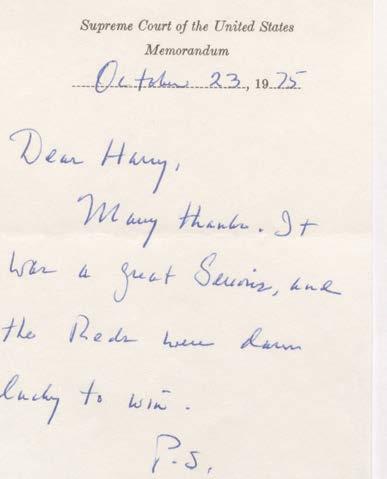 Supreme Court of the United States
Memorandum
October 23, 1975
Dear Harry,
Many thanks. It
was a great Series, and
the Reds were damn
lucky to win.
P.S.